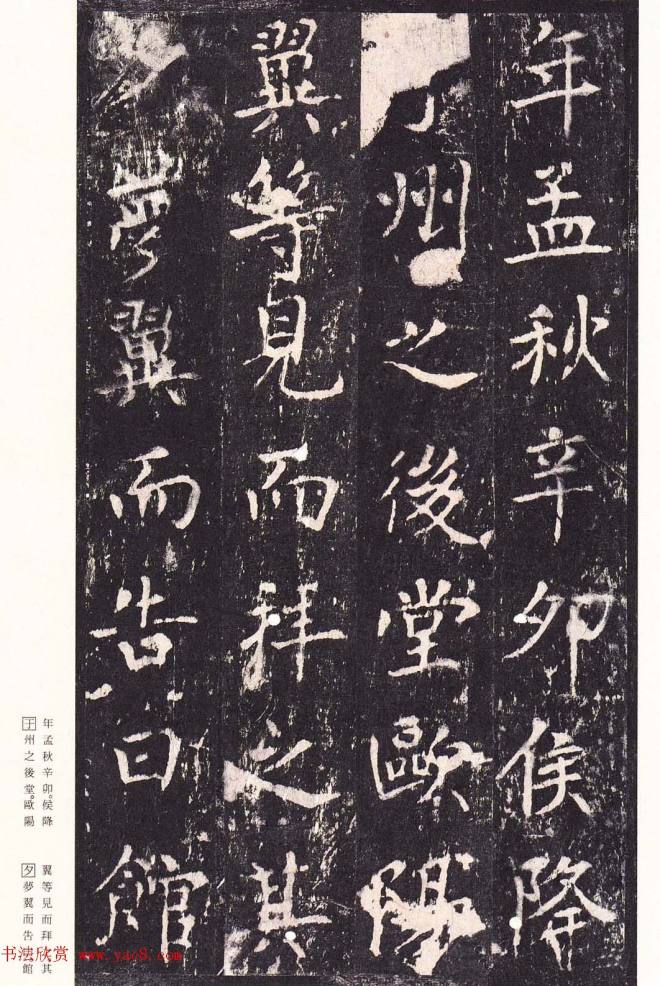 年孟秋辛卯侯降
于州之後堂歐陽
翼等見而拜之其
夕夢翼而告曰館
年孟秋辛卯。侯降
于州之後堂。歐陽
翼等見而拜其
夕夢翼而告館
书法欣赏 www.yac8.com